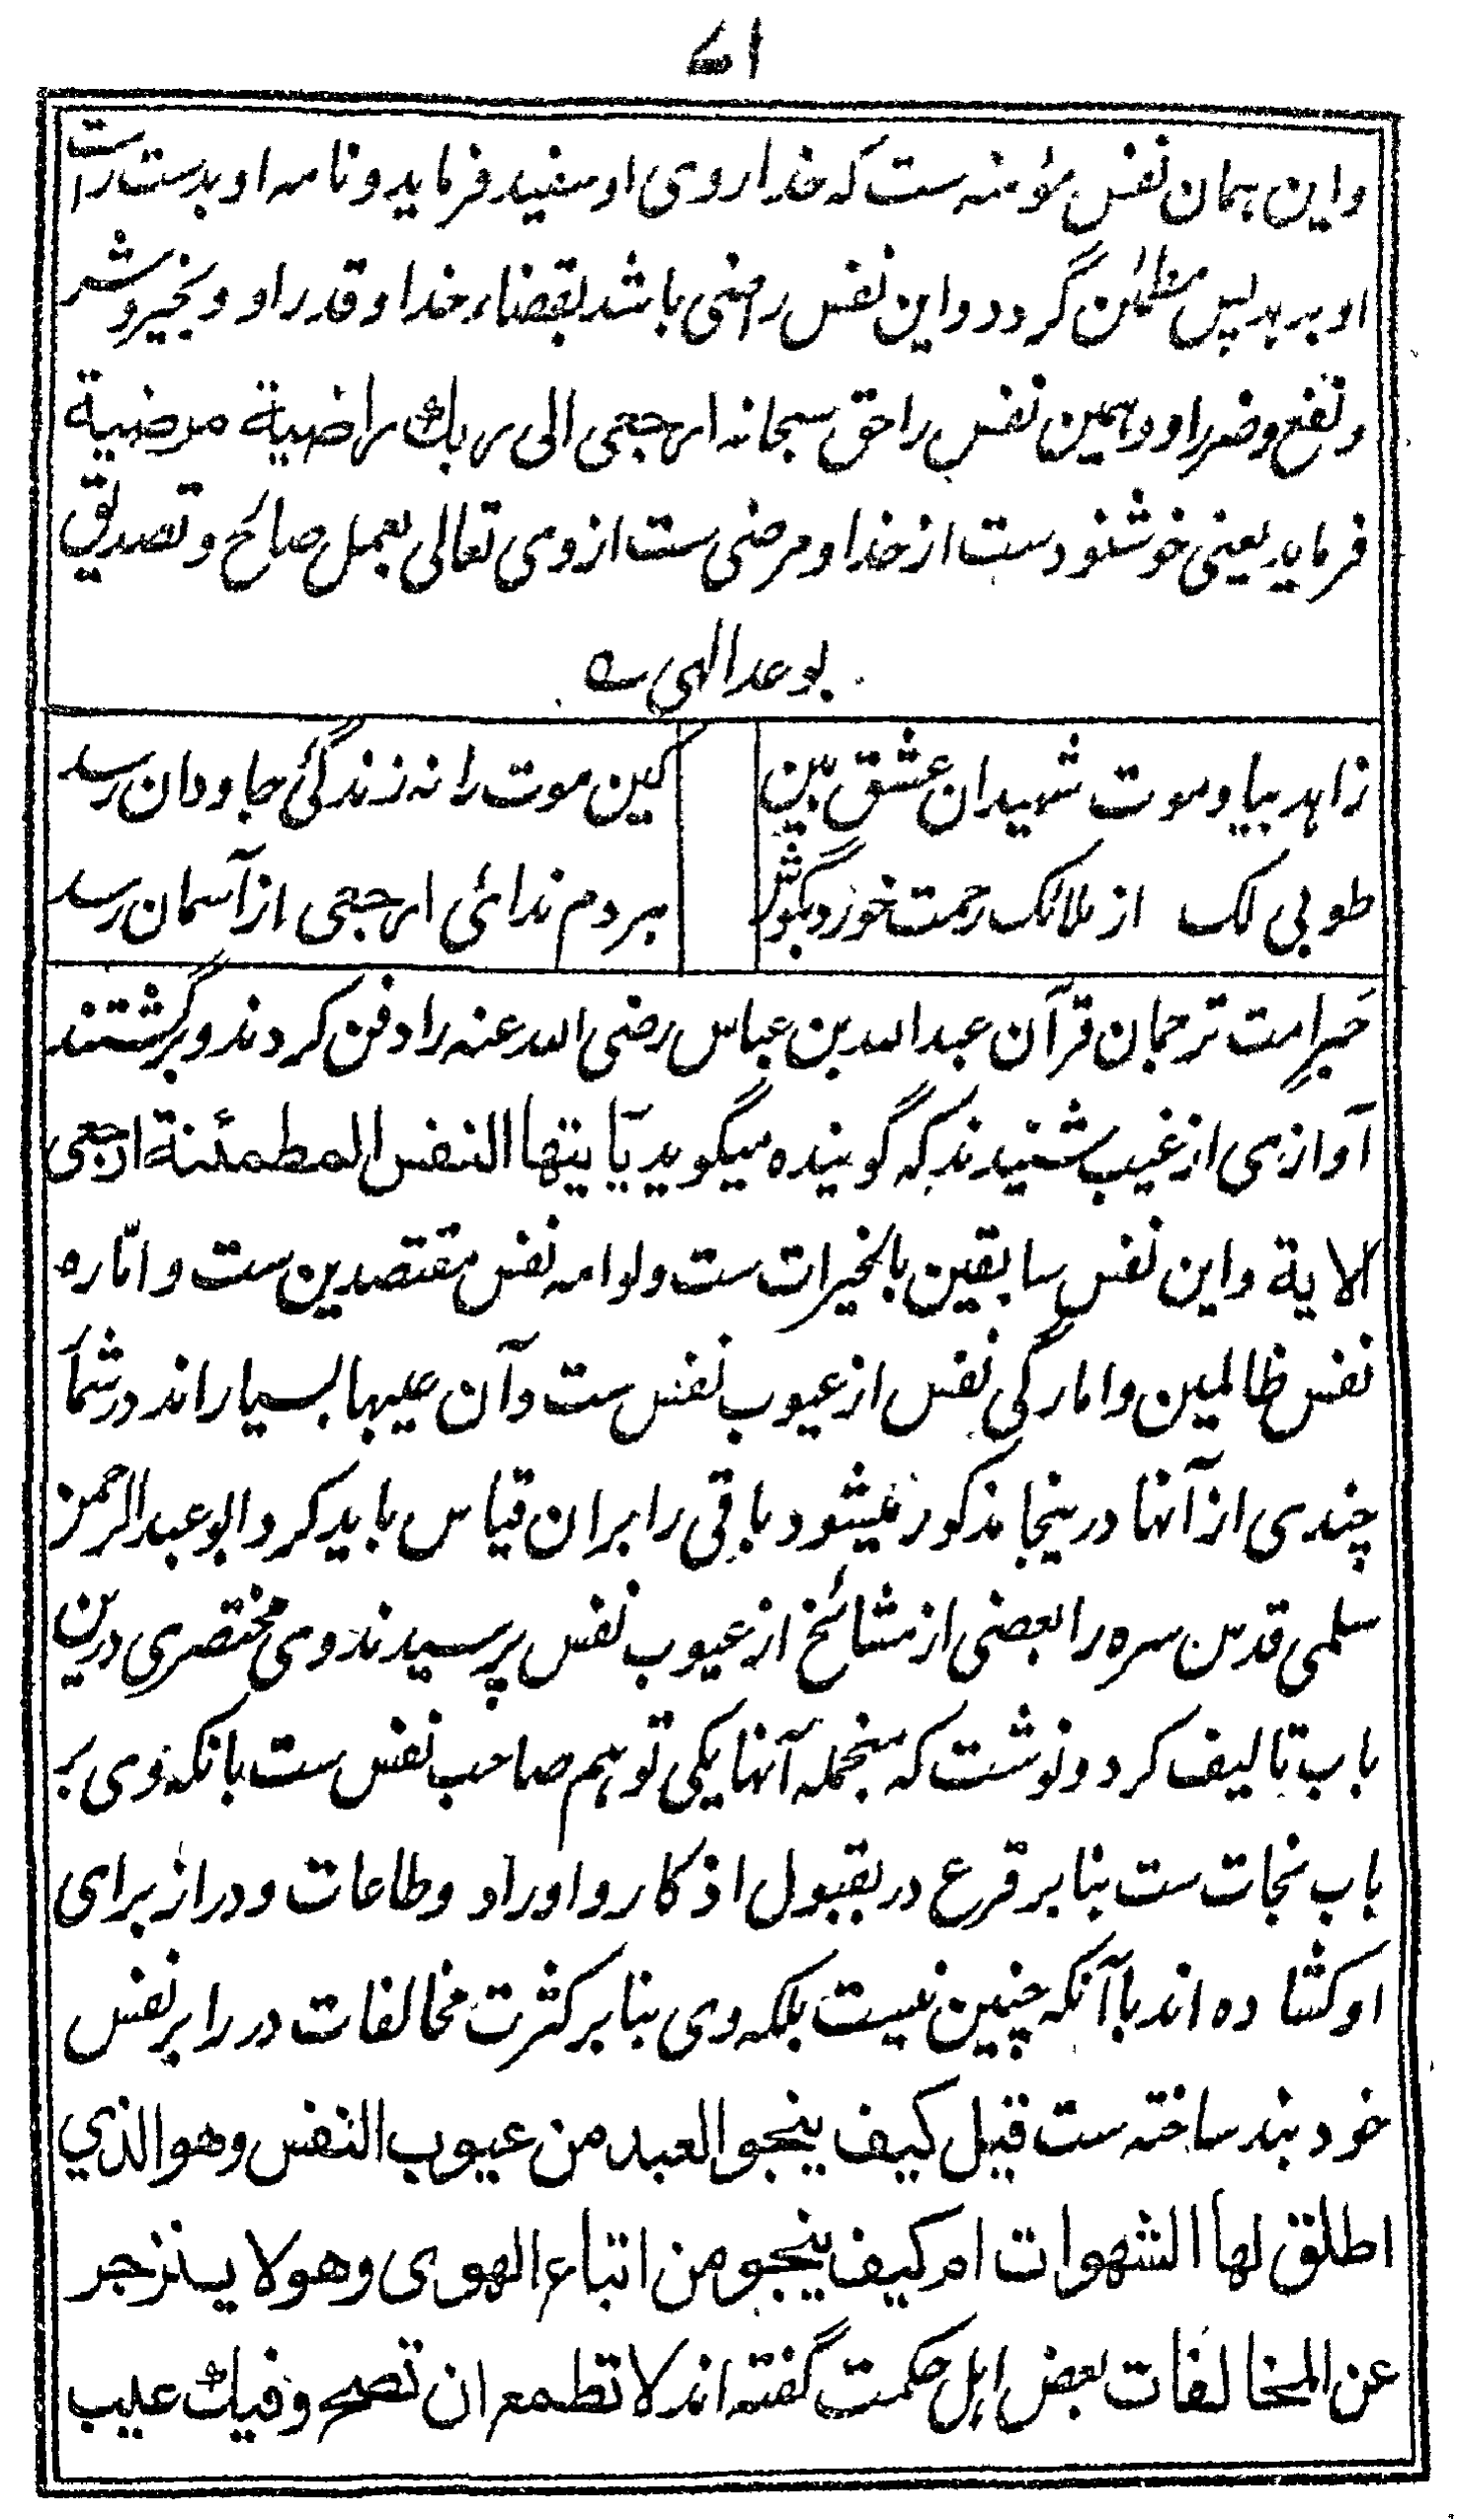 ۷۱
واین همان نفس مؤمنه ست که خدا روی او سفید فرماید و نامه او بدست راست
او بدهد پس مطمئن گردد و این نفس راضی باشد بقضاء خدا و قدر او و بخیر و شر
و نفع و ضرر او و همین نفس را حق سبحانه ارجعی الی ربك راضیة مرضیة
فرماید یعنی خوشنودست از خدا و مرضی ست از وی تعالی بعمل صالح و تصدیق
بوعد الهی ے
زاهد بیا و موت شهیدان عشق بین
کین موت را نه زندگئ جاودان رسد
طوبی لک از ملائک رحمت خورد بگوش
هردم ندائی ارجعی از آسمان رسد
حَبرِ امت ترجمان قرآن عبدالله بن عباس رضی الله عنه را دفن کردند و برگشتند
آوازی از غیب شنیدند که گوینده میگوید یآیتها النفس المطمئنة ارجعی
الایة و این نفس سابقین بالخیرات ست و لوامه نفس مقتصدین ست و امّاره
نفس ظالمین و امارگی نفس از عیوب نفس ست و آن عیبها بسیار اند در شمار
چندی از آنها درینجا مذکور میشود باقی را بران قیاس باید کرد ابو عبدالرحمن
سلمی قدس سره را بعضی از مشائخ از عیوب نفس پرسیدند وی مختصری درین
باب تالیف کرد و نوشت که منجمله آنها یکی توهم صاحب نفس ست بانکه وی بر
باب نجات ست بنابر قرع در بقبول اذکار و اوراد و طاعات و در از برای
او کشاده اند با آنکه چنین نیست بلکه وی بنابر کثرت مخالفات در را بر نفس
خود بند ساخته ست قیل کیف ینجو العبد من عیوب النفس وهو الذي
اطلق لها الشهوات ام کیف ینجو من اتباع الهوی وهو لا ینزجر
عن المخالفات بعض اهل حکمت گفته اند لا تطمع ان تصح وفیك عیب